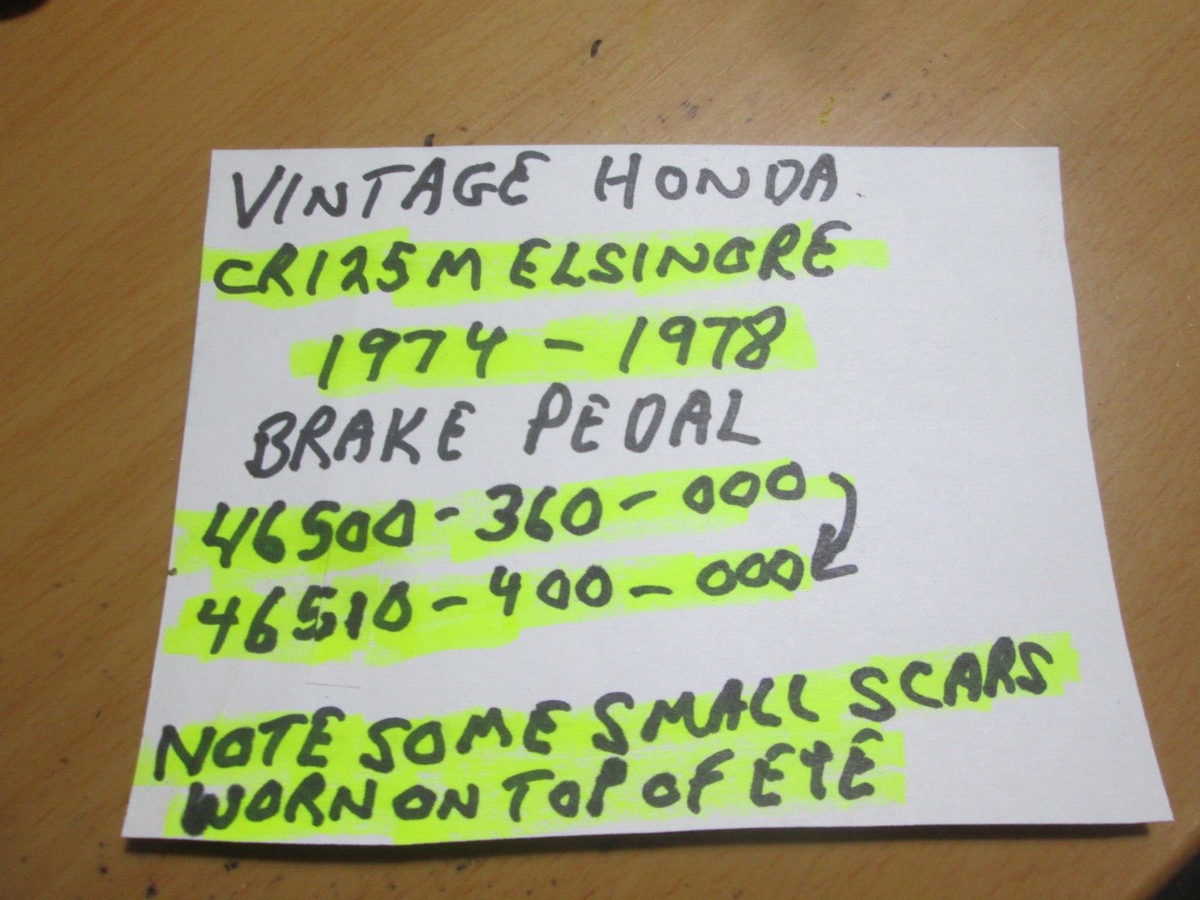 VINTAGE HONDA
CR125M ELSINORE
1974 - 1978
BRAKE PEDAL
46500-360-000
46510-400-000
NOTE SOME SMALL SCARS
WORN ON TOP OF EYE